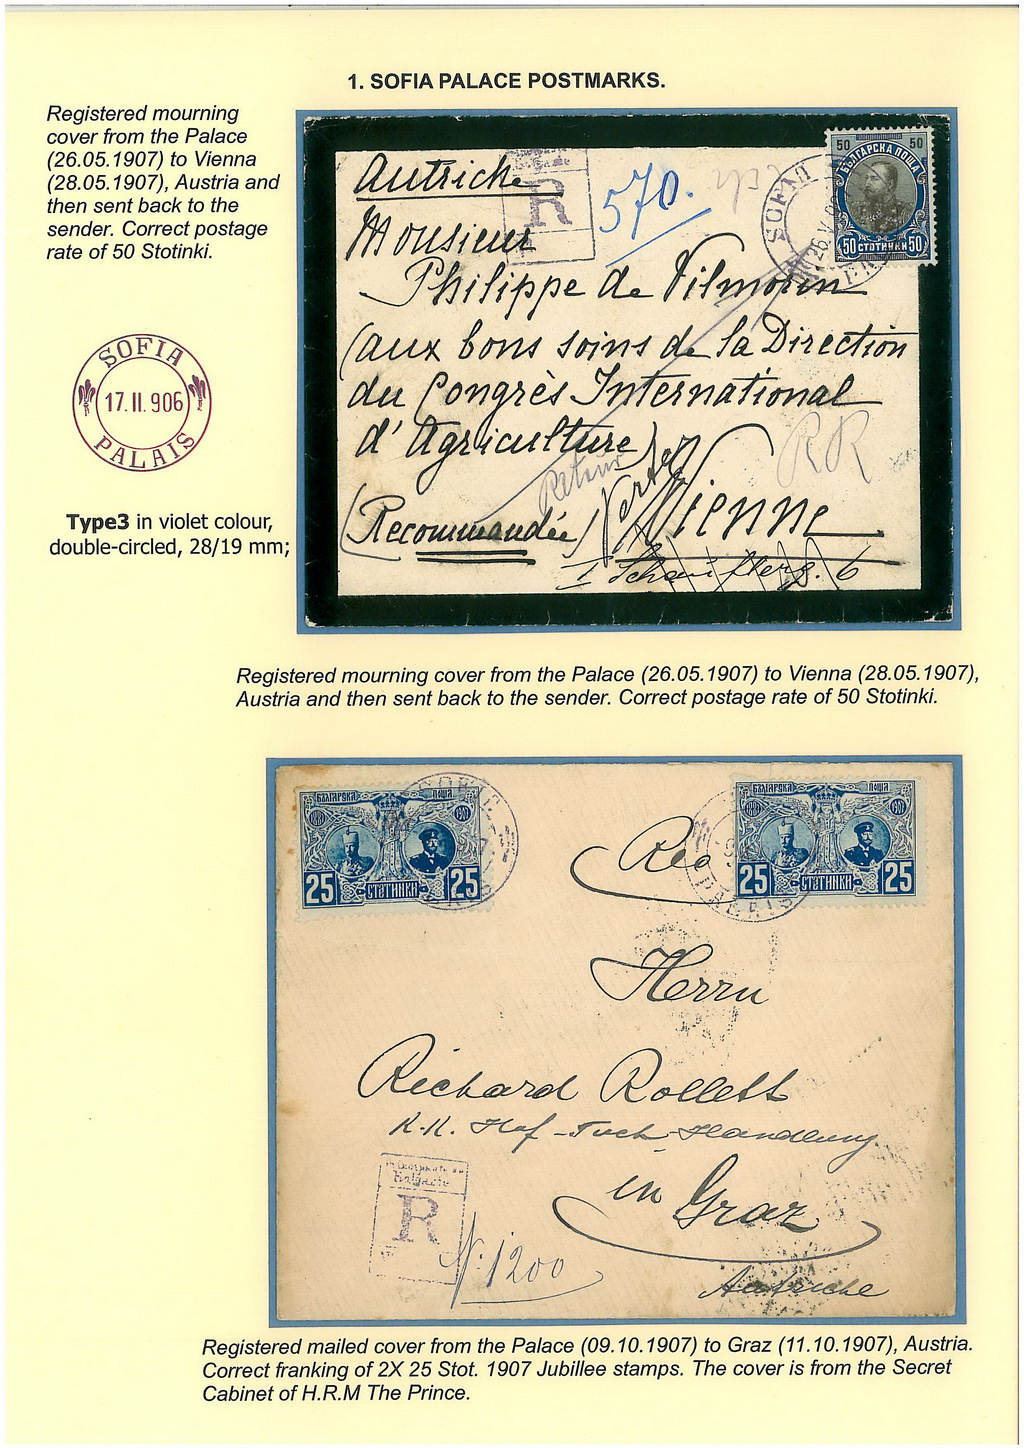 1. SOFIA PALACE POSTMARKS.
Registered mourning
cover from the Palace
(26.05.1907) to Vienna
(28.05.1907), Austria and
then sent back to the
sender. Correct postage
rate of 50 Stotinki.
SOFIA
17.II.906
PALAIS
Type3 in violet colour,
double-circled, 28/19 mm;
50 50
БЪЛГАРСКА ПОЩА
50 СТОТИНКИ 50
Autriche
R
570.
Monsieur
Philippe de Vilmorin
(aux bons soins de la Direction
du Congrès International
d'Agriculture)
Retour
RR
(Recommandée)
Vienne
I Schauflerg. 6
Registered mourning cover from the Palace (26.05.1907) to Vienna (28.05.1907),
Austria and then sent back to the sender. Correct postage rate of 50 Stotinki.
БЪЛГАРСКА ПОЩА
25 СТОТИНКИ 25
БЪЛГАРСКА ПОЩА
25 СТОТИНКИ 25
Rec
Herrn
Richard Rollett
K.K. Hof-Tuch-Handlung
in Graz
Autriche
Bulgarie
R
N: 1200
Registered mailed cover from the Palace (09.10.1907) to Graz (11.10.1907), Austria.
Correct franking of 2X 25 Stot. 1907 Jubillee stamps. The cover is from the Secret
Cabinet of H.R.M The Prince.